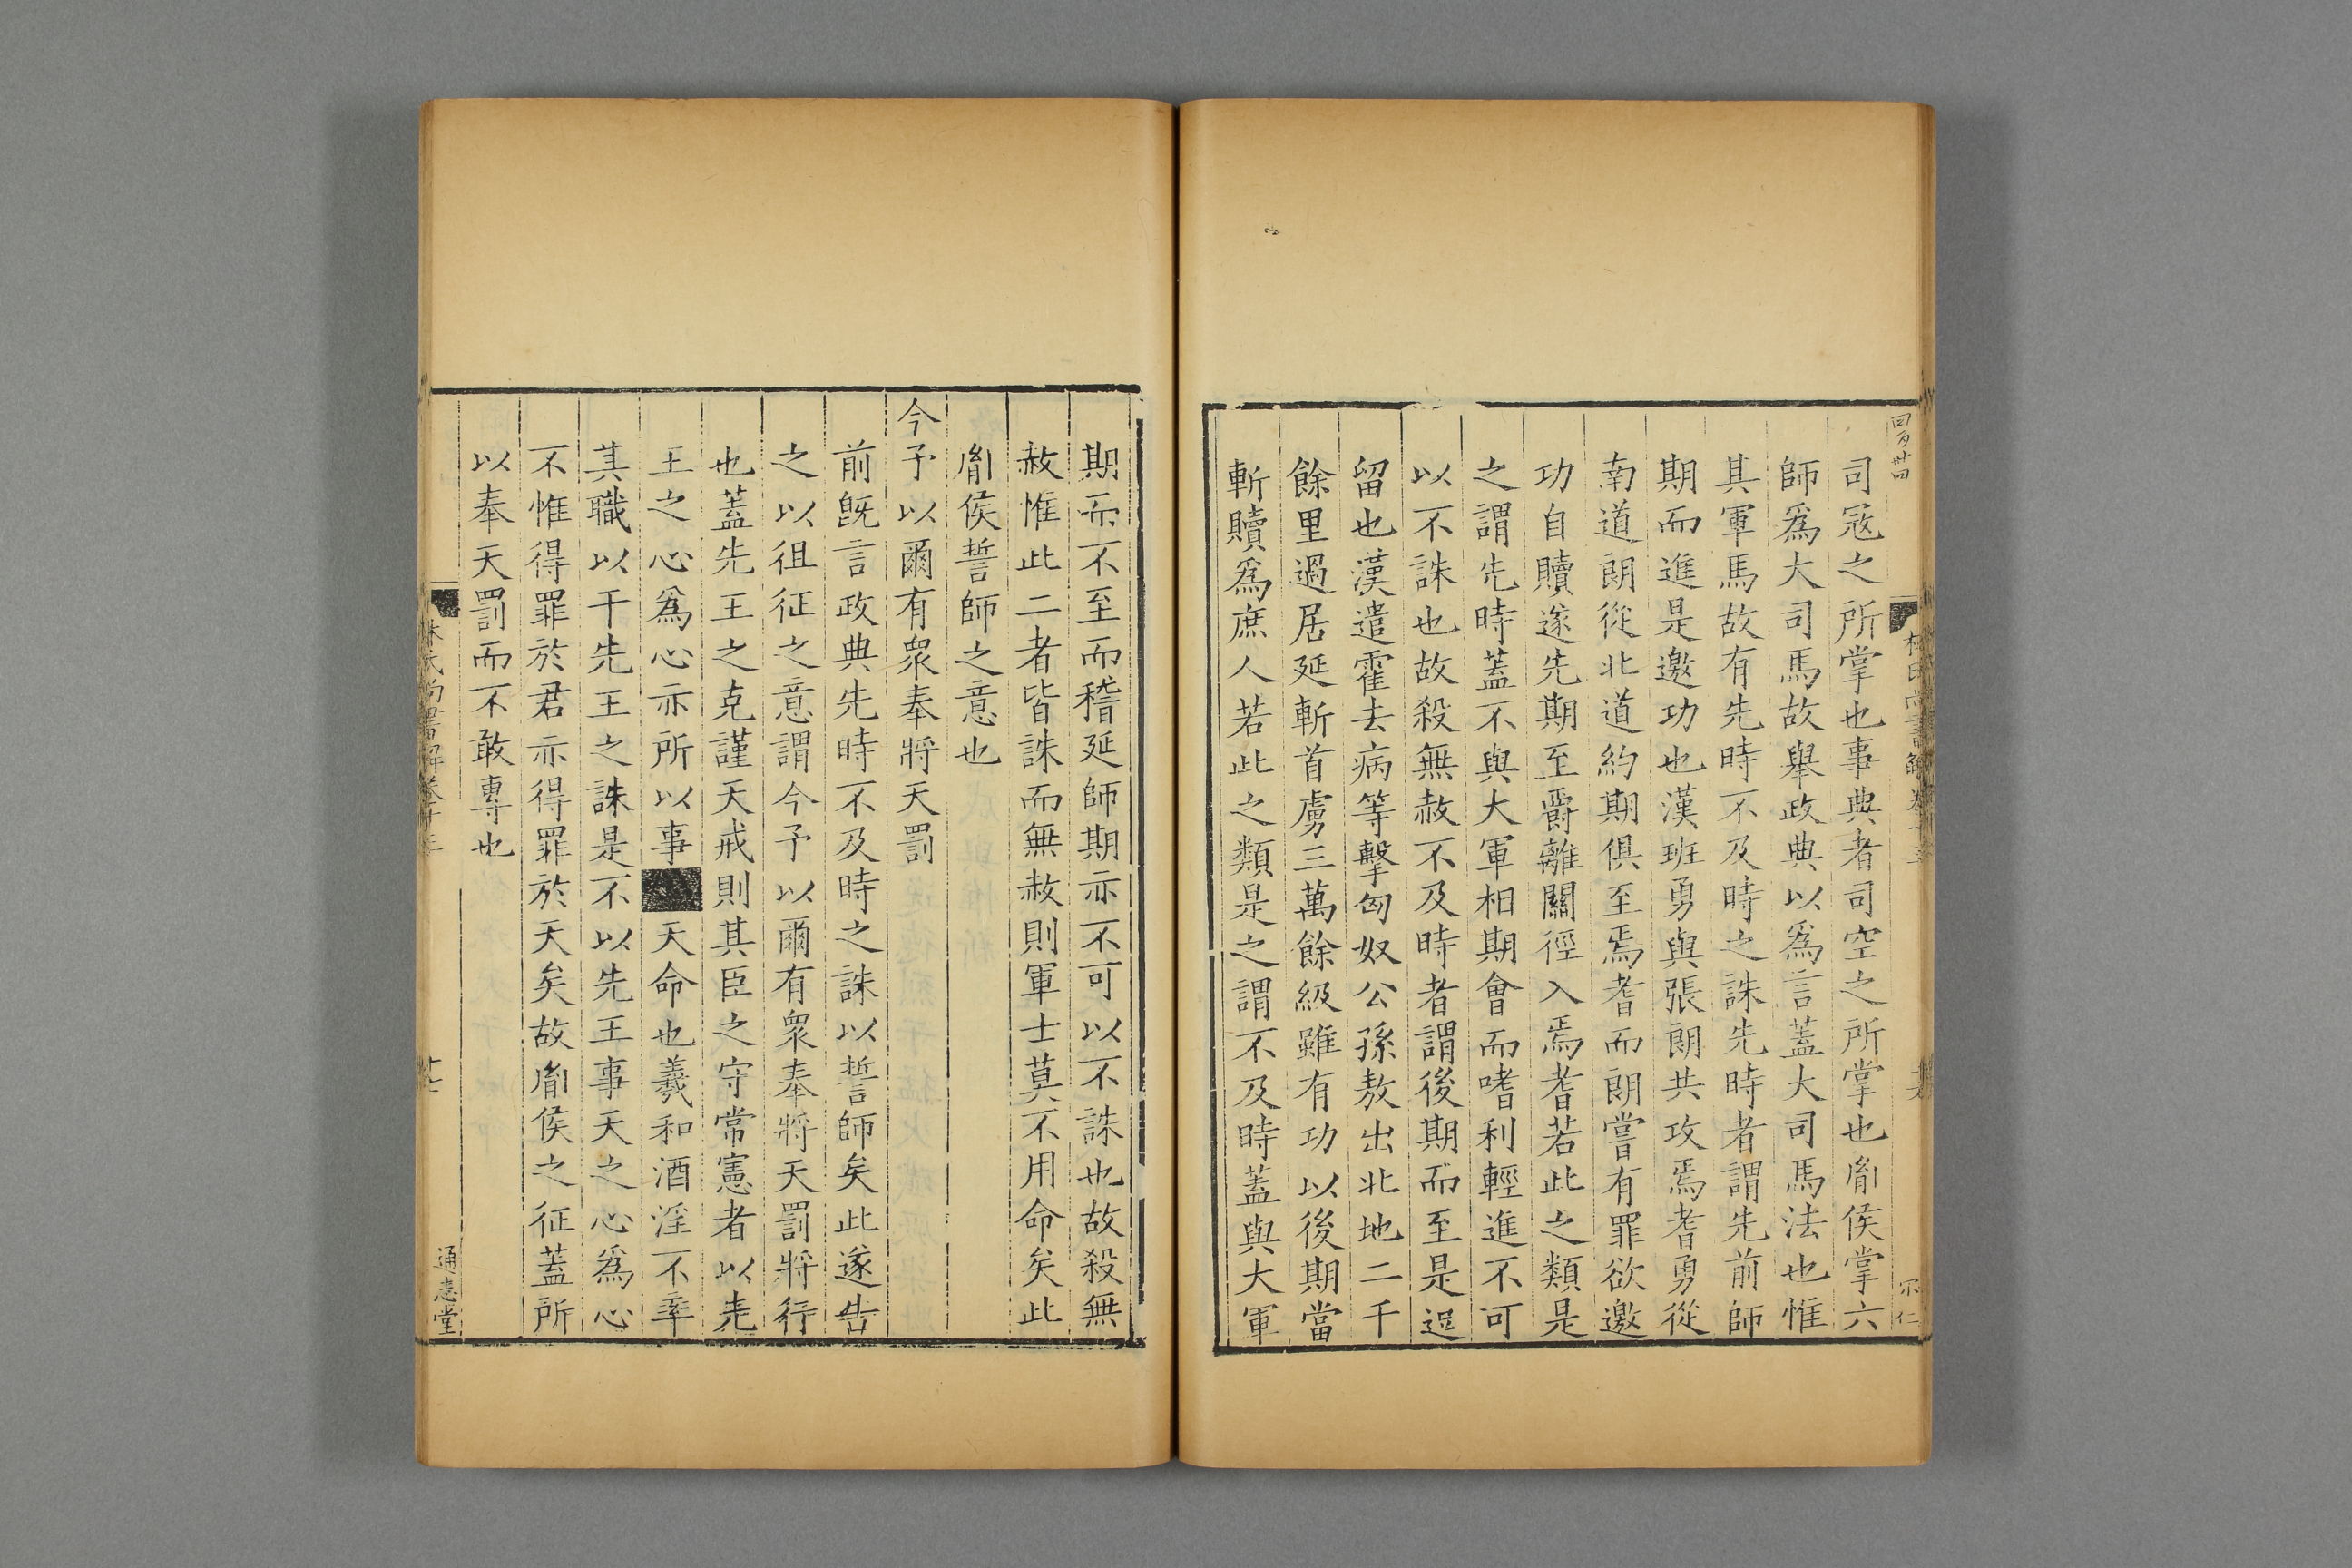 四百廿四
司冦之所掌也事典者司空之所掌也胤侯掌六
師爲大司馬故舉政典以爲言蓋大司馬法也惟
其軍馬故有先時不及時之誅先時者謂先前師
期而進是邀功也漢班勇與張朗共攻焉耆勇從
南道朗從北道約期俱至焉耆而朗嘗有罪欲邀
功自贖遂先期至爵離關徑入焉耆若此之類是
之謂先時蓋不與大軍相期會而嗜利輕進不可
以不誅也故殺無赦不及時者謂後期而至是逗
留也漢遣霍去病等擊匈奴公孫敖出北地二千
餘里過居延斬首虜三萬餘級雖有功以後期當
斬贖爲庶人若此之類是之謂不及時蓋與大軍
期而不至而稽延師期亦不可以不誅也故殺無
赦惟此二者皆誅而無赦則軍士莫不用命矣此
胤侯誓師之意也
今予以爾有衆奉將天罰
前旣言政典先時不及時之誅以誓師矣此遂告
之以徂征之意謂今予以爾有衆奉將天罰將行
也蓋先王之克謹天戒則其臣之守常憲者以先
王之心爲心亦所以事天命也羲和酒淫不率
其職以干先王之誅是不以先王事天之心爲心
不惟得罪於君亦得罪於天矣故胤侯之征蓋所
以奉天罰而不敢專也
林氏尚書解卷十三
通志堂